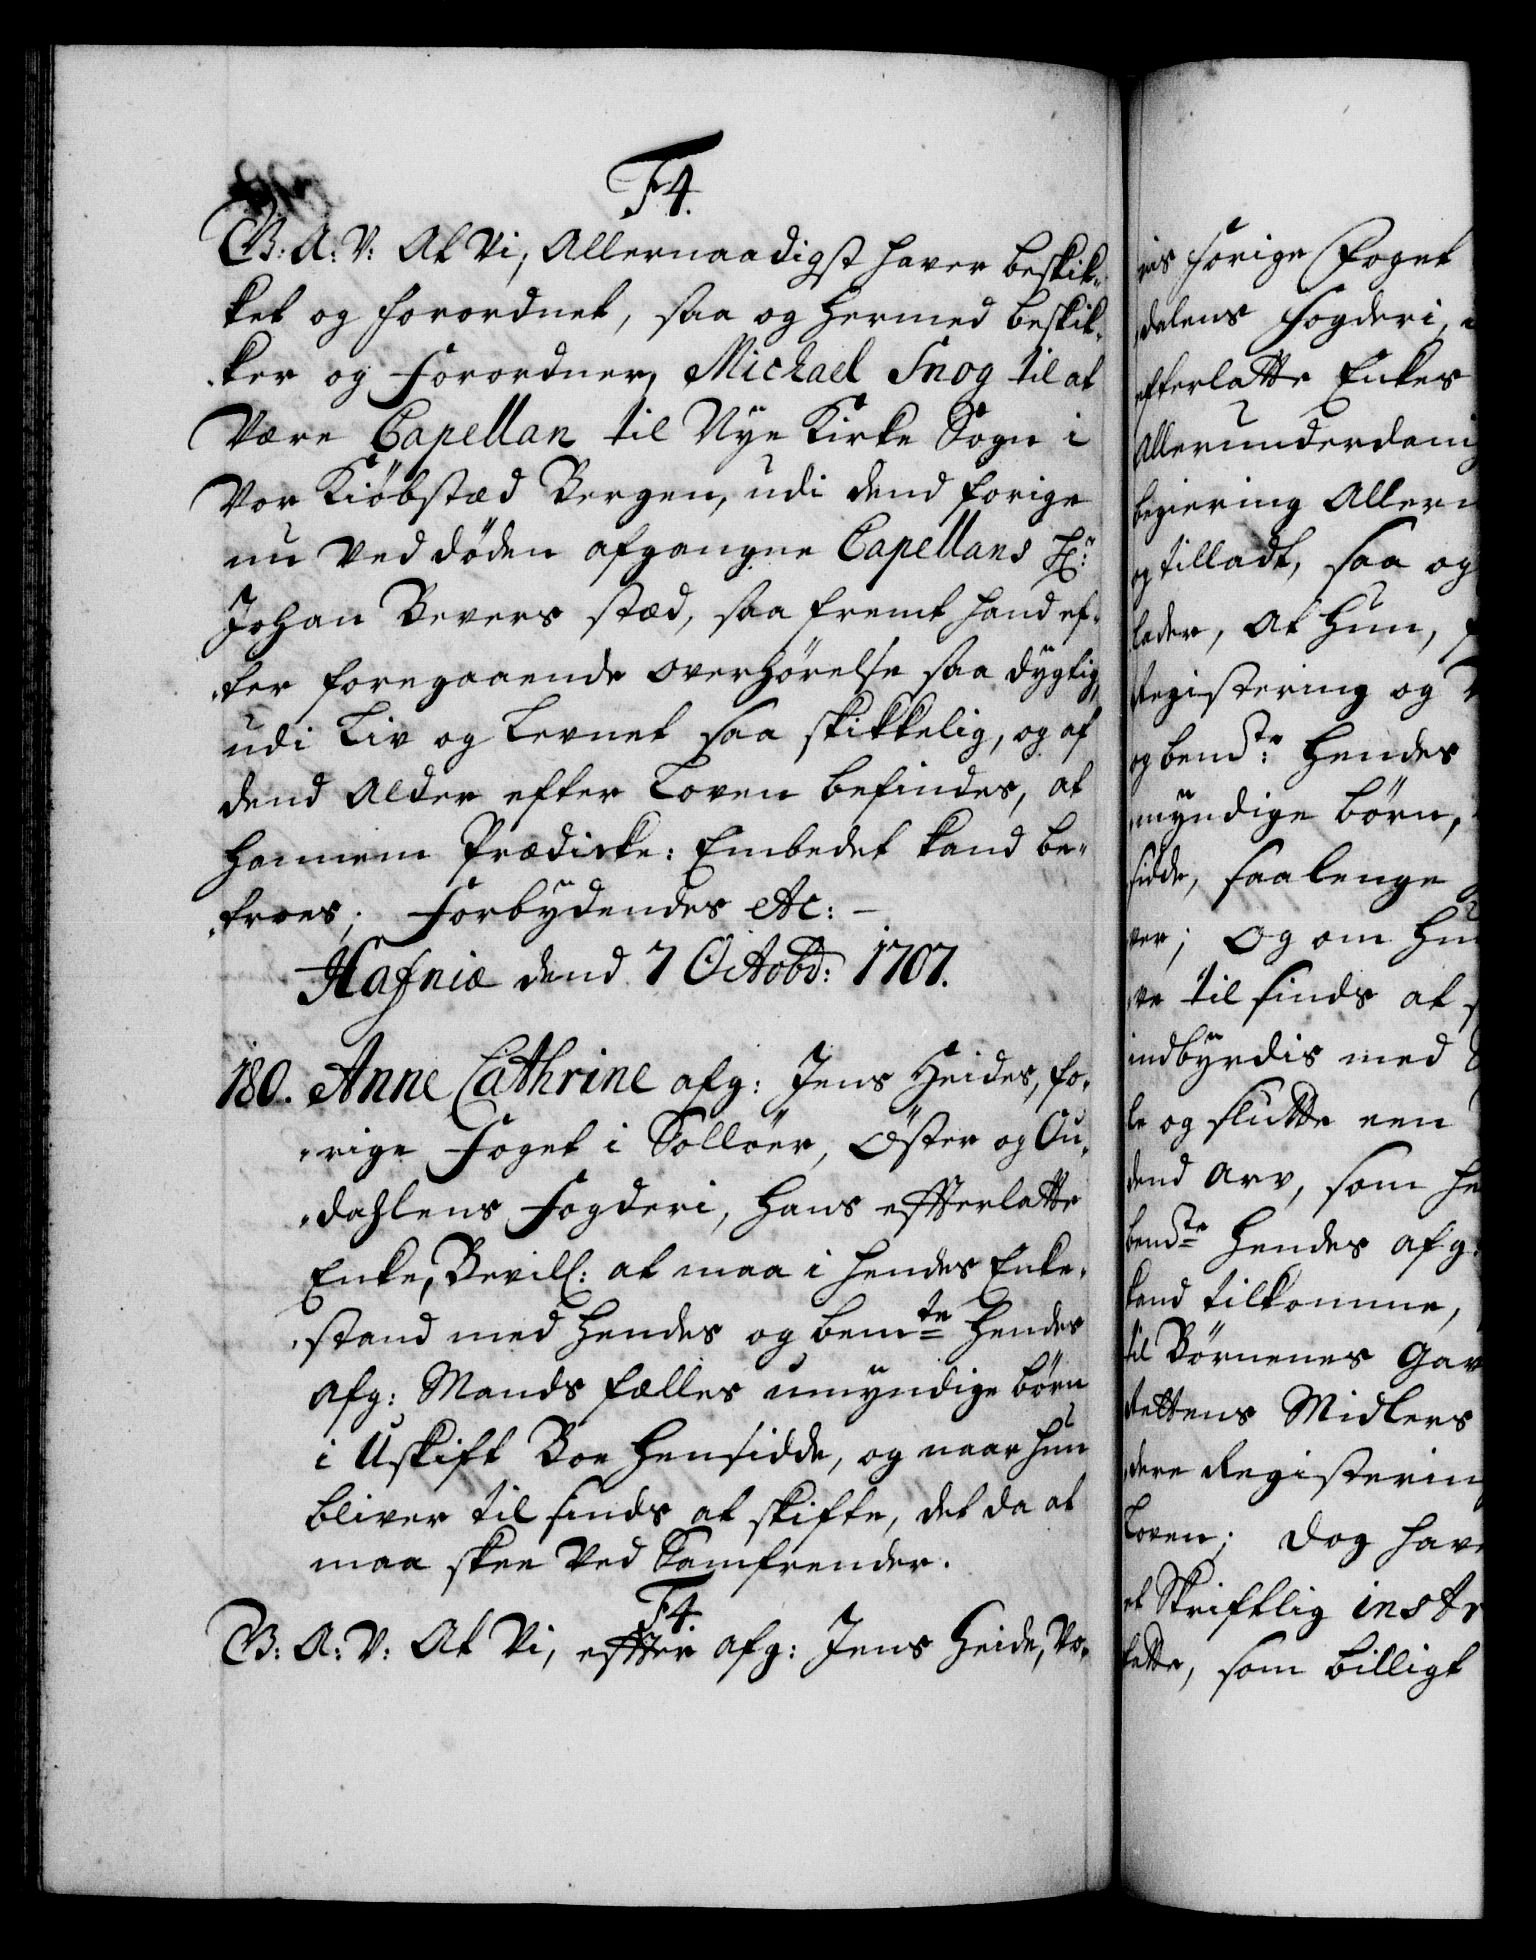 F4.
G: A: V: At Vi, Allernaadigst haver beskik-
ket og forordnet, saa og hermed beskik-
ker og Forordner, Michael Snog til at
Være Capellan til Nÿe Kirke Sogn i
Vor Kiöbstæd Bergen, udi dend forige
nu ved döden afgangne Capellans Hr:
Johan Bevers stæd, saa fremt hand ef-
ter foregaaende overhörelse saa dÿgtig,
udi Liv og Levnet saa skikkelig, og af
dend Alder efter Loven befindes, at
hannem Prædicke: Embedet kand be-
troes; Forbÿdendes etc: -
Hafniæ dend 7 Octobr: 1707.
180. Anne Cathrine afg: Jens Heides, fo-
rige Foget i Solloer, Öster og Ou-
dahlens Fogderi, hans effterlatte
Enke, Bevill: at maa i hendes Enke-
stand med hendes og bemte hendes
afg: Mands fælles umÿndige börn
i Uskift Boe hensidde, og naar hun
bliver til sinds at skifte, det da at
maa skee ved Samfrender.
F4
G: A: V: At Vi, effter afg: Jens Heide, Vo-
ris forige Foget
dalens Fogderi,
efterlatte Enkes
Allerunderdanig
begiering Allern
og tilladt, saa og
lader, at hun,
Registering og
og bemdte: hendes
mÿndige börn,
sidde, saalenge
ver; Og om hun
ve til sinds at
indbÿrdis med
le og slutte een
dend Arv, som he
bemdte hendes afg:
kand tilkomme,
til Börnenes Gav
Rettens Midlers
dere Registering
Loven; dog hav
et Skriftlig instr
sette, som billigt